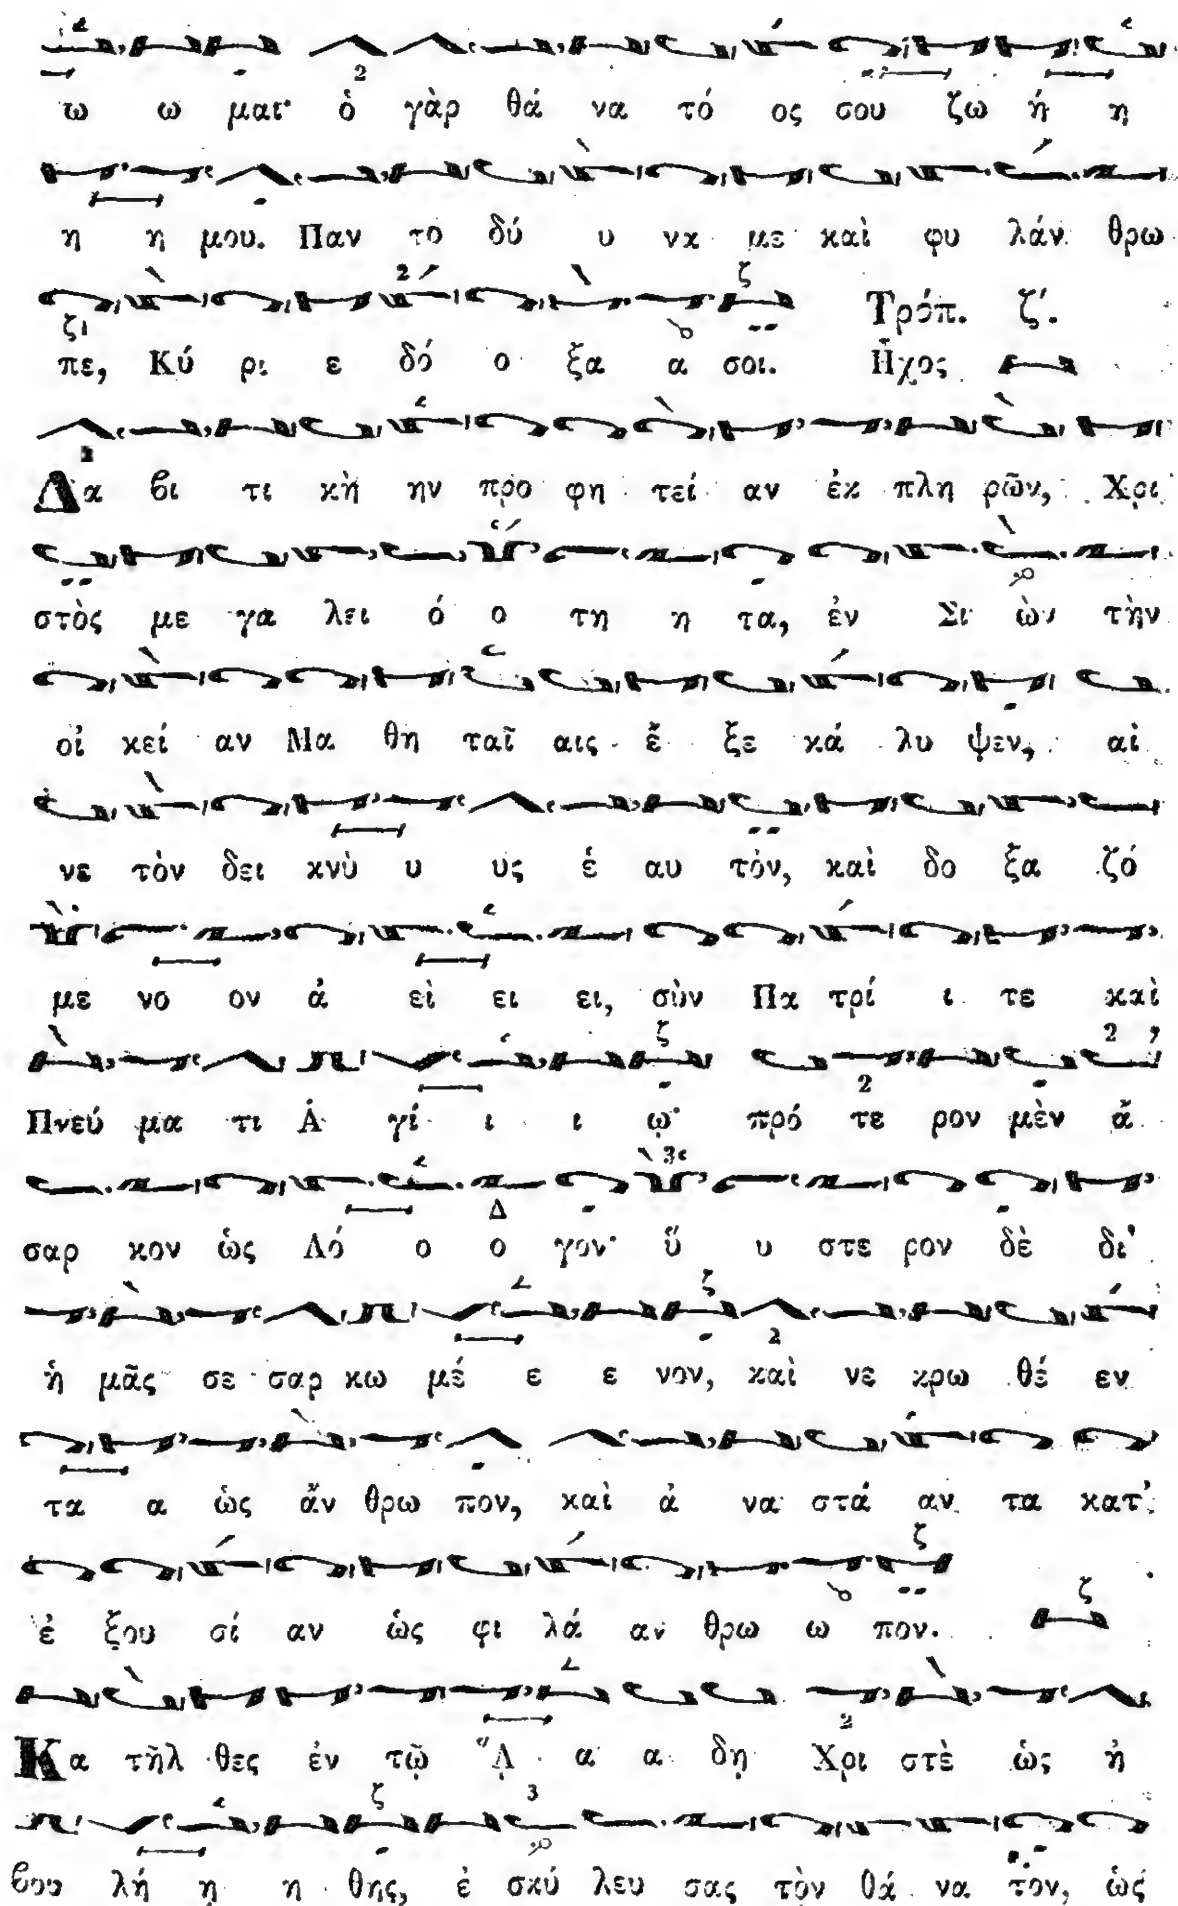 ω ω μαι· ὁ γὰρ θά να τό ος σου ζω ή η
η η μου. Παν το δύ υ να με καὶ φυ λάν θρω
πε, Κύ ρι ε δό ο ξα α σοι. Τρόπ. ζ΄. Ἦχος
Δα βι τι κὴ ην προ φη τεί αν ἐκ πλη ρῶν, Χρι
στὸς με γα λει ό ο τη η τα, ἐν Σι ὼν τὴν
οἰ κεί αν Μα θη ταῖ αις ἔ ξε κά λυ ψεν, αἰ
νε τὸν δει κνὺ υ υς ἑ αυ τὸν, καὶ δο ξα ζό
με νο ον ἀ εὶ ει ει, σὺν Πα τρί ι τε καὶ
Πνεύ μα τι Ἁ γί ι ι ῳ· πρό τε ρον μὲν ἄ
σαρ κον ὡς Λό ο ο γον· ὕ υ στε ρον δὲ δι'
ἡ μᾶς σε σαρ κω μέ ε ε νον, καὶ νε κρω θέ εν
τα α ὡς ἄν θρω πον, καὶ ἀ να στά αν τα κατ'
ἐ ξου σί αν ὡς φι λά αν θρω ω πον.
Κα τῆλ θες ἐν τῷ ᾍ α α δῃ Χρι στὲ ὡς ἠ
βου λή η η θης, ἐ σκύ λευ σας τὸν θά να τον, ὡς